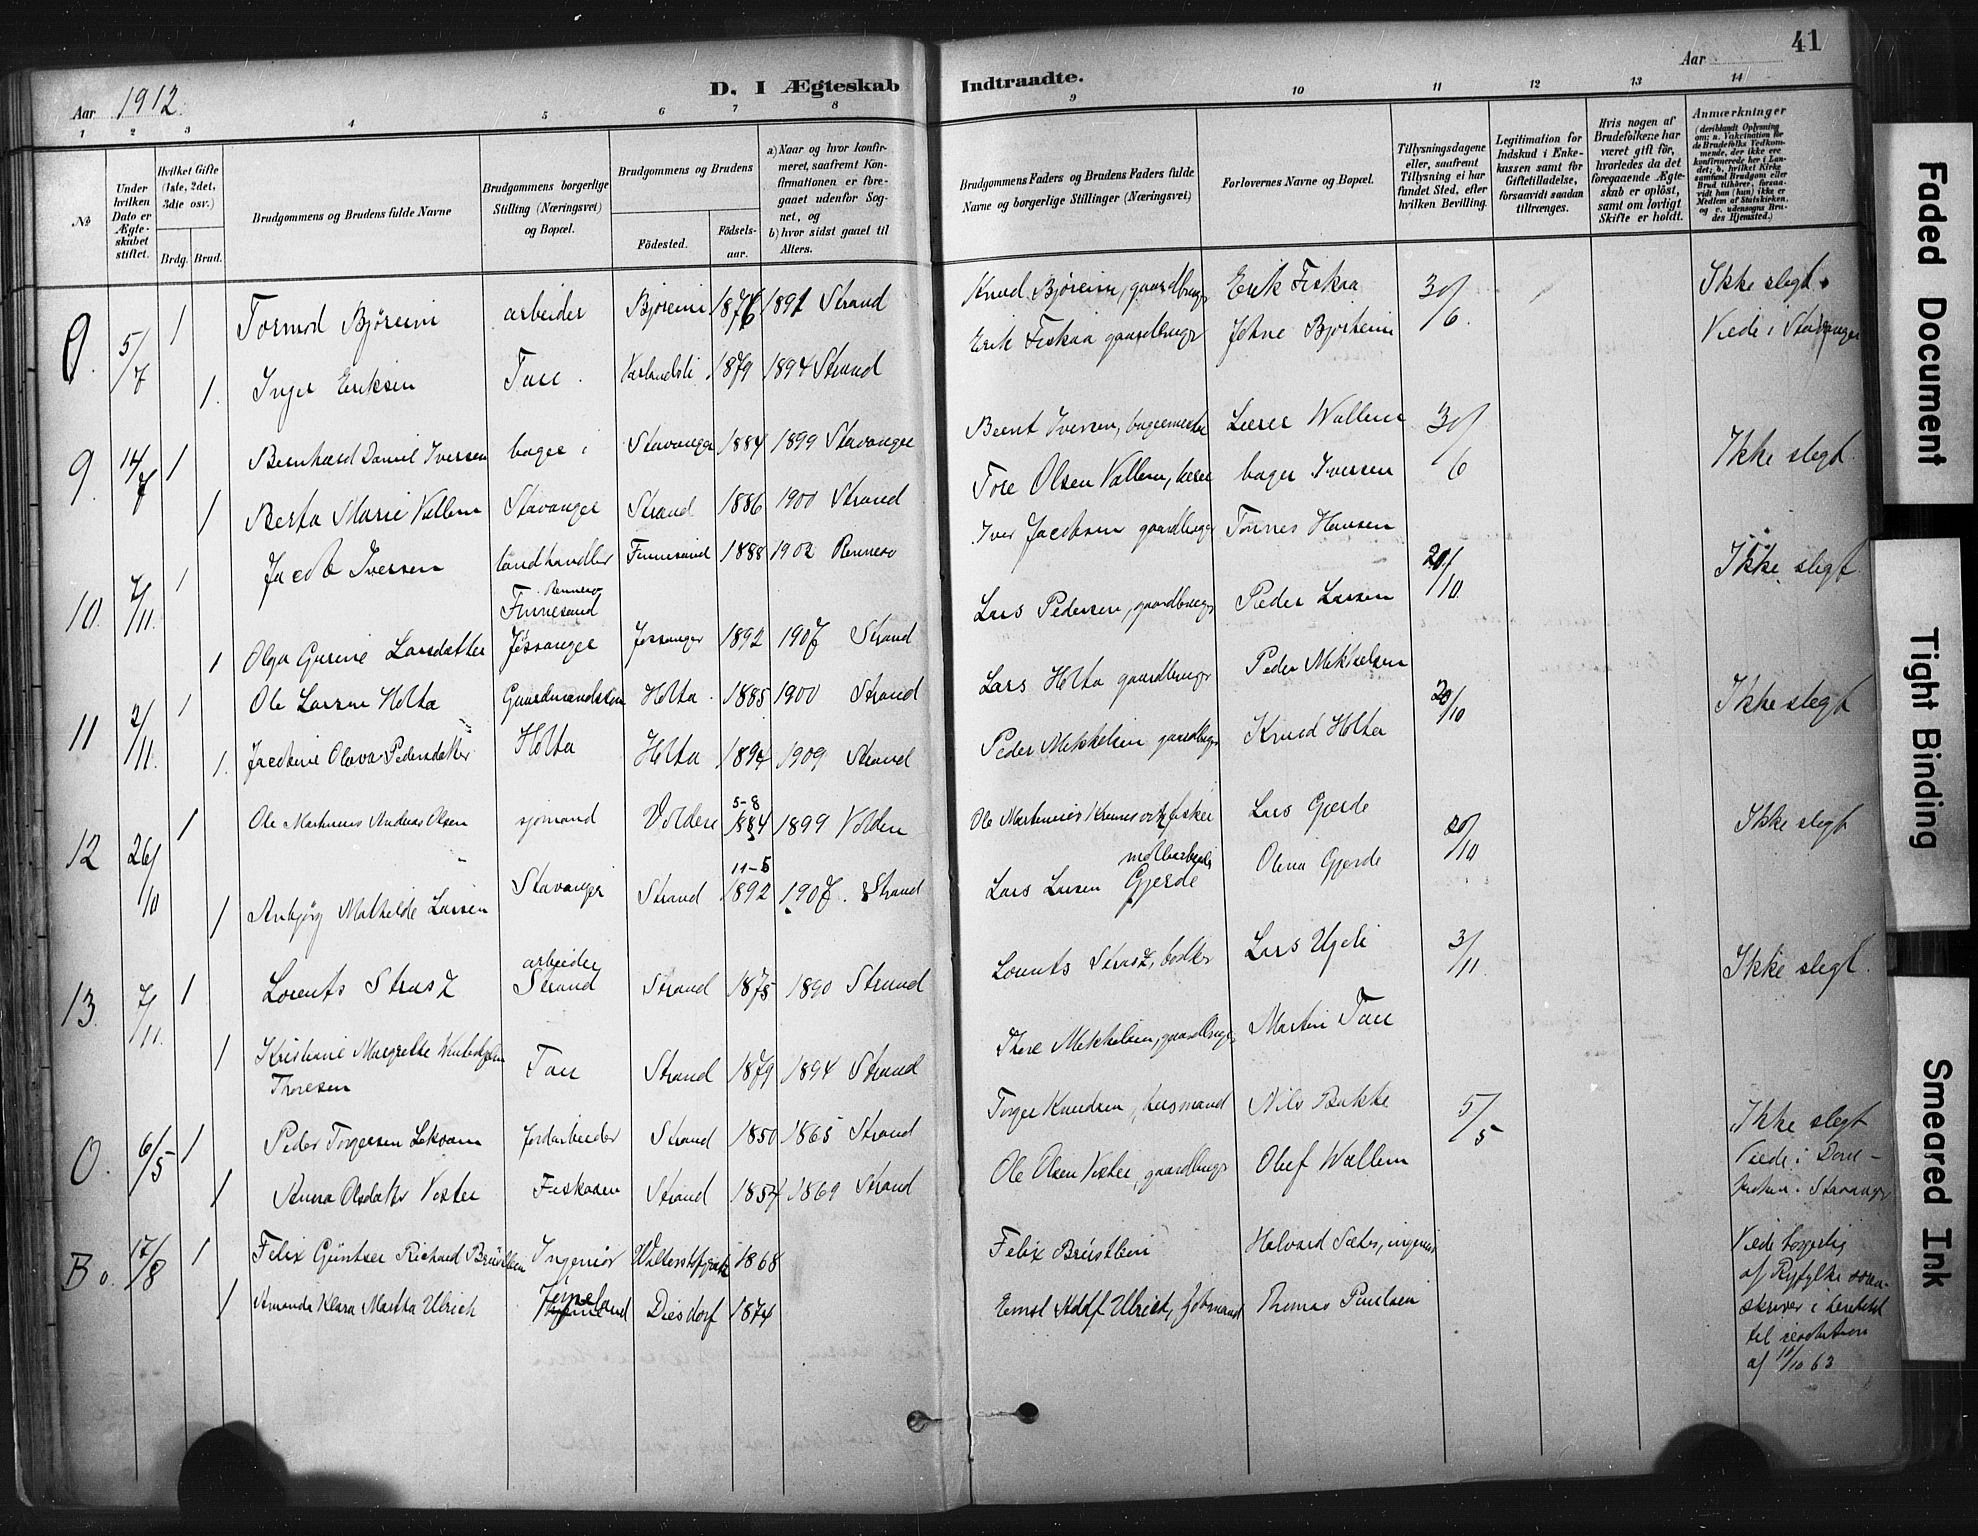 Aar 1912.
D. I Ægteskab Indtraadte.
Aar
41
1 2 3 4 5 6 7 8 9 10 11 12 13 14
No
Under hvilken Dato er Ægteskabet stiftet.
Hvilket Gifte (1ste, 2det, 3die osv.)
Brdg. Brud.
Brudgommens og Brudens fulde Navne
Brudgommens borgerlige Stilling (Næringsvei) og Bopæl.
Brudgommens og Brudens
Födested.
Födselsaar.
a) Naar og hvor konfirmeret, saafremt Konfirmationen er foregaaet udenfor Sognet, og
b) hvor sidst gaaet til Alters.
Brudgommens Faders og Brudens Faders fulde Navne og borgerlige Stillinger (Næringsvei)
Forlovernes Navne og Bopæl.
Tillysningsdagene eller, saafremt Tillysning ei har fundet Sted, efter hvilken Bevilling.
Legitimation for Indskud i Enkekassen samt for Giftetilladelse, forsaavidt saadan tiltrænges.
Hvis nogen af Brudefolkene har været gift för, hvorledes da det foregaaende Ægteskab er oplöst, samt om lovligt Skifte er holdt.
Anmærkninger
(deriblandt Oplysning om: a. Vakcination for de Brudefolks Vedkommende, der ikke ere konfirmerede her i Landet; b. hvilket Kirkesamfund Brudgom eller Brud tilhörer, forsaavidt han (hun) ikke er Medlem af Statskirken, og c. udensogns Brudes Hjemsted.)
0. 5/7 1 Tormod Björeim arbeider Björeim 1876 1891 Strand Knud Björeim, gaardbruger Erik Fiskaa 30/6. Ikke slegt.
1. Inger Eriksen Tau. 1879 1894 Strand Erik Fiskaa gaardbruger Johne Bjorheim Viede i Stavanger
9. 14/7 1 Bernhard Daniel Iversen bager i Stavanger 1884 1899 Stavanger Berent Iversen, bagermester Lærer Wallem 30/6 Ikke slegt.
1 Berta Marie Vallem Stavanger Strand 1886 1900 Strand Tore Olsen Vallem, lærer bager Iversen
10. 7/11. 1 Jacob Iversen landhandler Rennesø Finnesand Finnesand 1888 1902 Rennesø Iver Jacobsen gaardbruger Tönnes Hansen 20/10. Ikke slegt.
1 Olga Gurine Larsdatter Jössanger Jössanger 1892 1907 Strand Lars Pedersen, gaardbruger Peder Larsen
11 2/11. 1 Ole Larsen Holta Gaardmandssön Holta. 1885 1900 Strand Lars Holta gaardbruger Peder Mikkelsen 20/10 Ikke slegt
1. Jacobine Olava Pedersdatter Holta Holta 1894 1909 Strand Peder Mikkelsen gaardbruger Knud Holta
12 26/10 1 Ole Martinus Andreas Olsen sjomand Volden 5-8 1884 1899 Volden Ole Martinus fisker Lars Gjerde 20/10 Ikke slegt
1 Anbjörg Mathilde Larsen Stavanger Strand 11-5 1892 1907. Strand Lars Larsen Gjerde Olena Gjerde
13. 7/11. 1 Lorents Strasz arbeider Strand Strand 1875 1890 Strand Lorents Strasz, bödker Lars 3/11. Ikke slegt.
1 Kristiane Margrethe Thoresen Tau Strand 1879 1894 Strand Thore Mikkelsen, gaardbruger Martin Tau
O. 6/5 1 Peder Torgersen Lekvam Jordarbeider Strand 1850 1865 Strand Torger Knudsen, husmand Nils Bakke 5/5 Ikke slegt
1 Anna Olsdatter Vostei Fiskaaen Strand 1854 1869 Strand Ole Olsen Vostei, gaardbruger Oluf Wallem Viede i Domkirken i Stavanger
Bo. 17/8 1 Felix Güntser Richard Brüstlein Ingeniör 1868 Felix Brüstlein Halvard Sæter, ingeniör Viede borgerlig
1 Amanda Klara Martha Ulrich Diesdorf 1874 Ernst Adolf Ulrich, Thomas Paulsen af Ryfylke soren-
skriver i henhold
til resolution
af 14/10 63